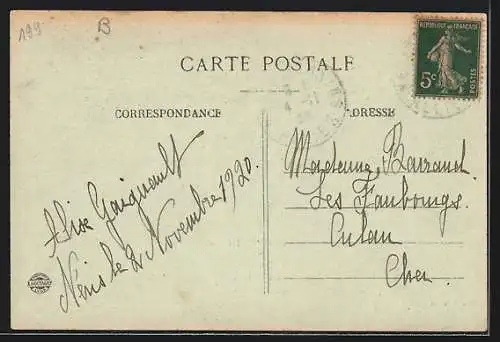 199
B
CARTE POSTALE
REPUBLIQUE FRANÇAISE
5c
POSTES
CORRESPONDANCE
ADRESSE
Alise Gaignault
Néris le 2 Novembre 1920.
Madame Barraud
Les Faubourgs.
Culan
Cher